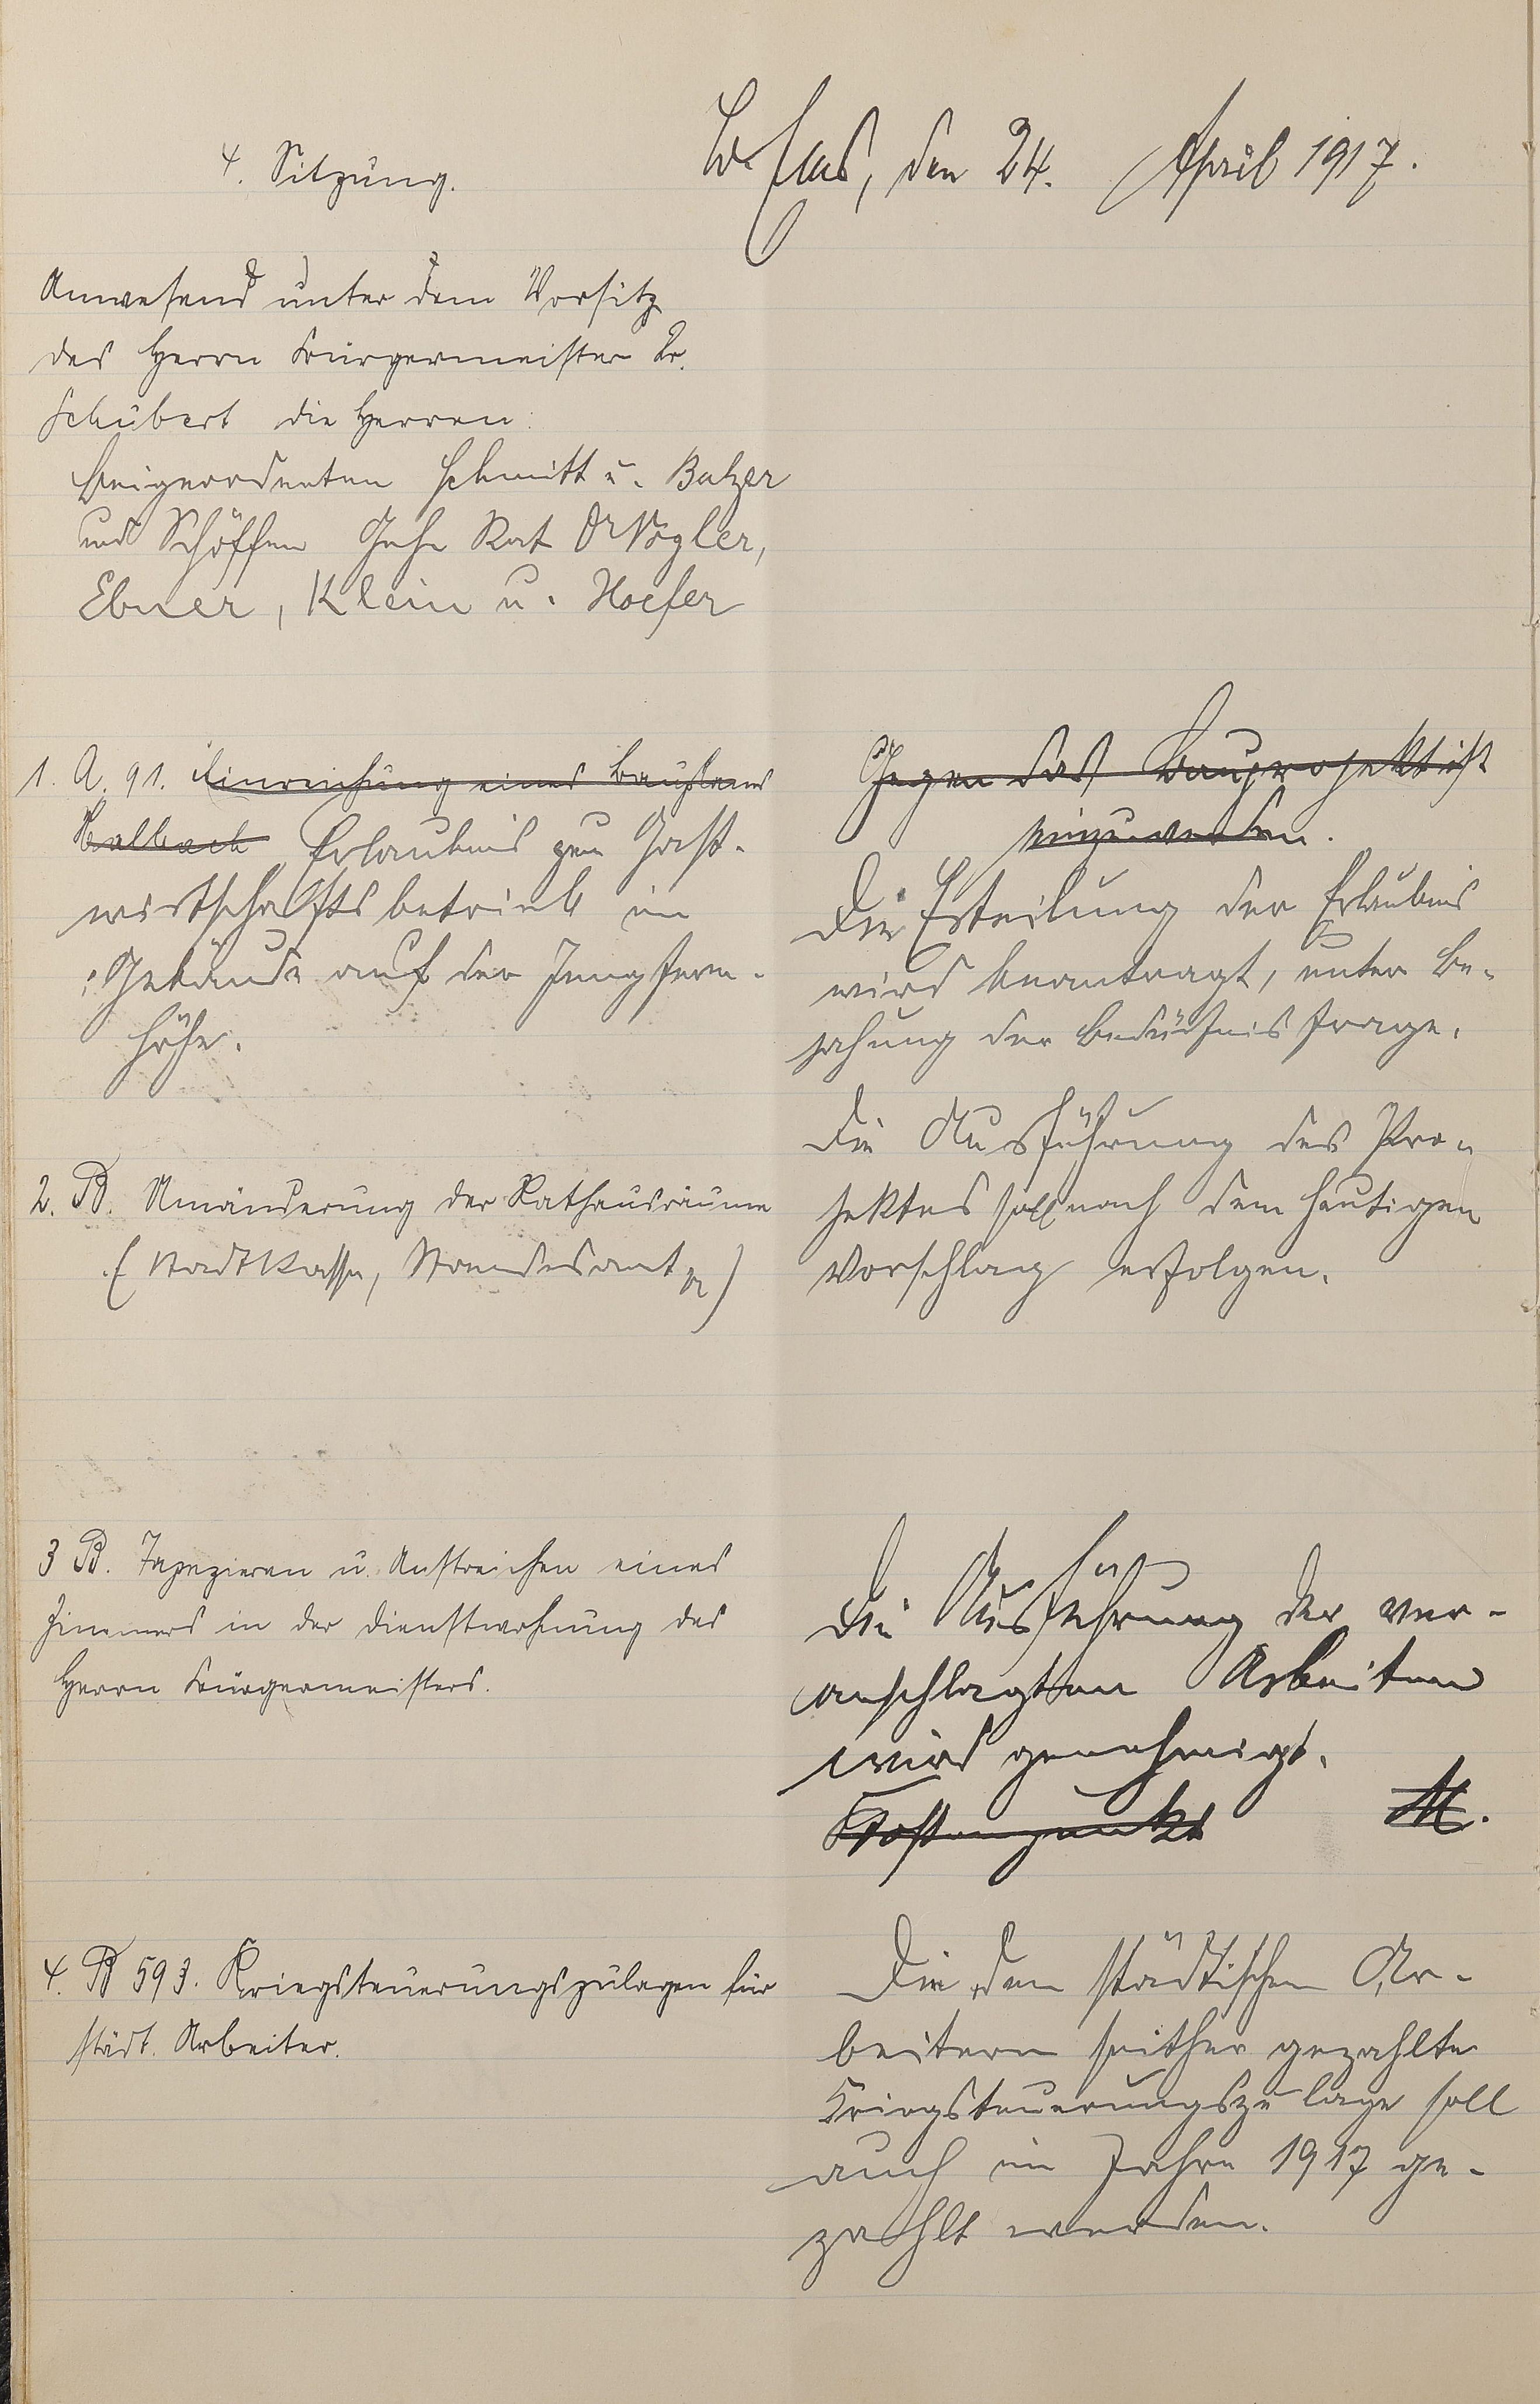 4. Sitzung.
B. Ems, den 24. April 1917.
Anwesend unter dem Vorsitz
des Herrn Bürgermeister Dr.
Schubert die Herren:
Beigeordneten Schmitt u. Balzer
und Schöffen Geh. Rat Dr Vogler,
Ebner, Klein u. Hoefer
1. A. 91. Einreichung eines Bauplans
Kalbach Erlaubnis zum Gast-
wirtschaftsbetrieb im
Gebäude auf der Jungfern-
höhe.
Gegen das Bauprojekt ist
einzuwenden.
Die Erteilung der Erlaubnis
wird beantragt, unter Be-
jahung der Bedürfnisfrage.
2. B. Umänderung der Rathausräume
(Stadtkasse, Standesamt
Die Ausführung des Pro-
jektes soll nach dem heutigen
Vorschlag erfolgen.
3 B. Tapezieren u. Anstreichen eines
Zimmers in der Dienstwohnung des
Herrn Bürgermeisters.
Die Ausführung der ver-
anschlagten Arbeiten
wird genehmigt.
Kostenpunkt M.
4. B 593. Kriegsteuerungszulagen für
städt. Arbeiter.
Die den städtischen Ar-
beitern seither gezahlte
Kriegsteuerungszulage soll
auch im Jahre 1917 ge-
zahlt werden.